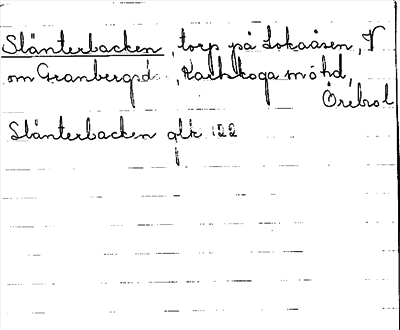 Slänterbacken, torp på Lokaåsen, V
om Granbergsd, Karlskoga
Örebro l
Slänterbacken glk 122